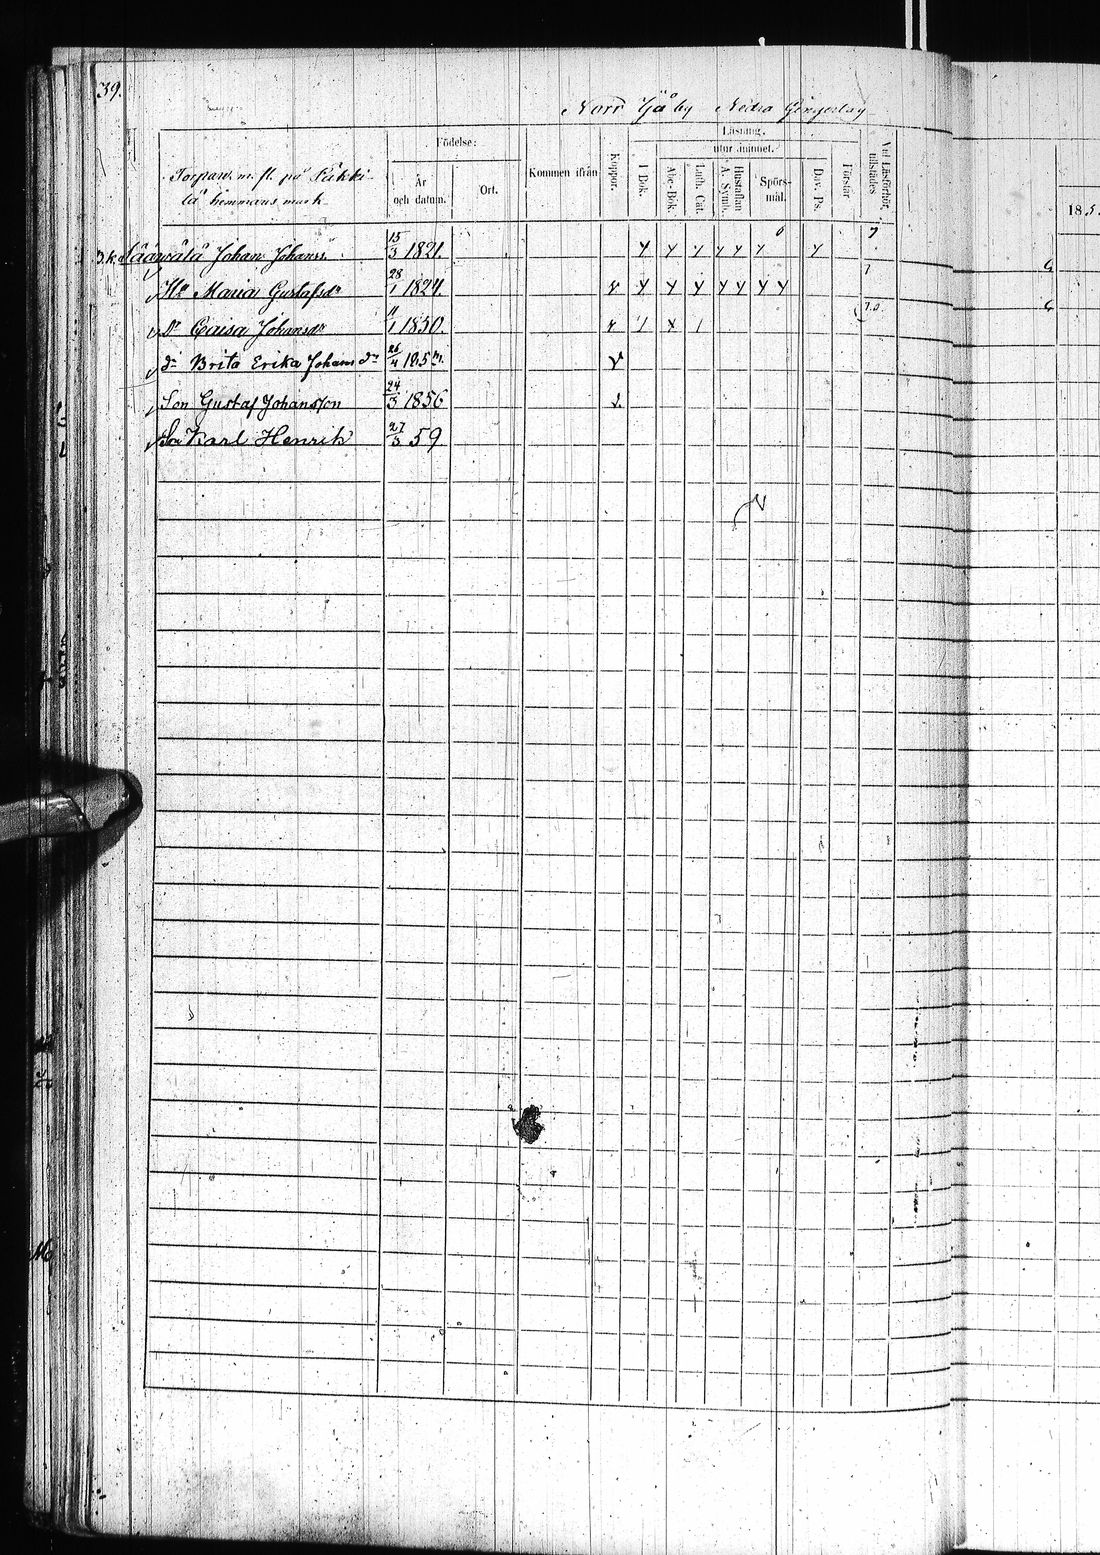 39.
Norr Jjå by Nedra Görgeslag
Torpare m. fl. på Pukki-
lä hemmans mark
Födelse:
År och datum.
Ort.
Kommen ifrån
Koppor.
Läsning,
utur minnet.
I Bok.
Abc-Bok.
Luth. Cat.
Hustaflan A. Symb.
Spörs-
mål.
Dav. Ps.
Förstår
Vid Läsförhör tillstädes
185
Johan Johanss. 15/3 1821.
Hu Maria Gustafsdr 28/1 1824.
Dr Caisa Johansdr 11/1 1850.
dr Brita Erika Johansdr 26/4 1854.
Son Gustaf Johansson 24/3 1856
Son Karl Henrik 27/3 59